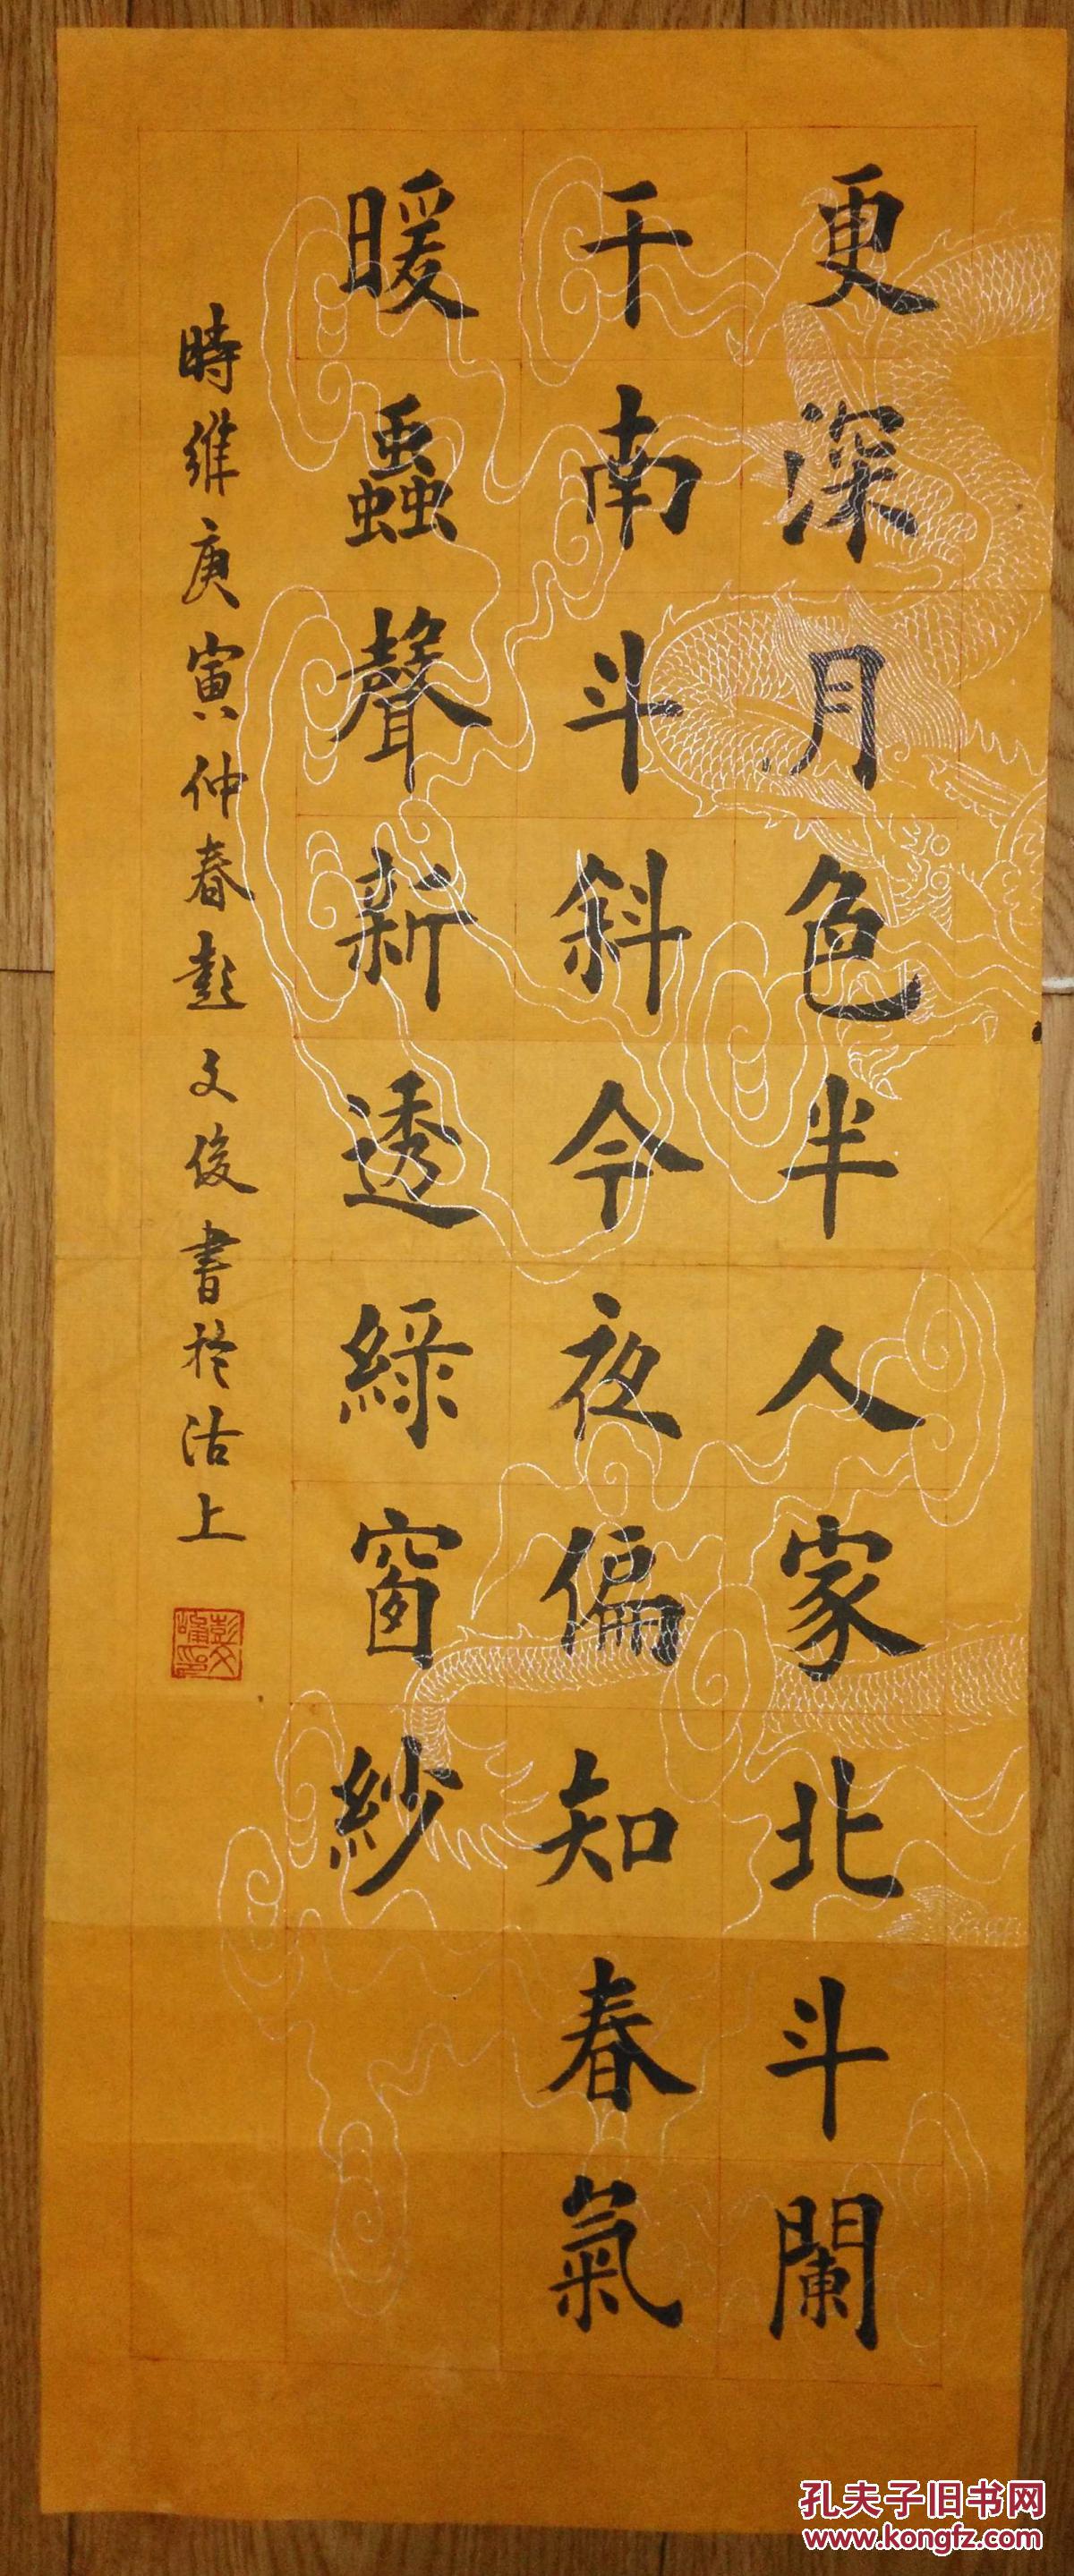 更深月色半人家北斗闌
干南斗斜今夜偏知春氣
暖蟲聲新透綠窗紗
時維庚寅仲春彭文俊書於沽上
孔夫子旧书网
www.kongfz.com